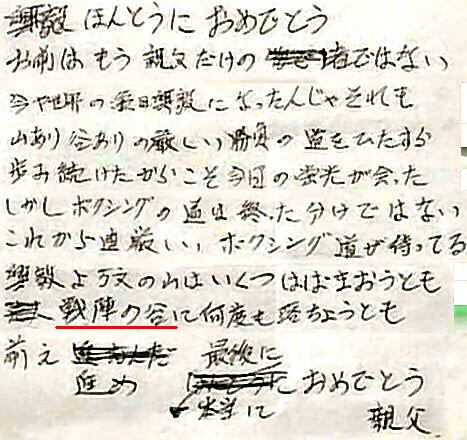 興毅 ほんとうに おめでとう
お前は もう 親父だけの 者ではない
今や世界の亀田興毅になったんじゃそれも
山あり谷ありの厳しい勝負の道をひたすら
歩み続けたからこそ今日の栄光が会った
しかしボクシングの道は終った分けではない
これから厳しいボクシング道が待ってる
興毅よ万丈の山はいくつはばまおうとも
戦陣の谷に何度も落ちょうとも
前え 最後に
進め おめでとう
親父